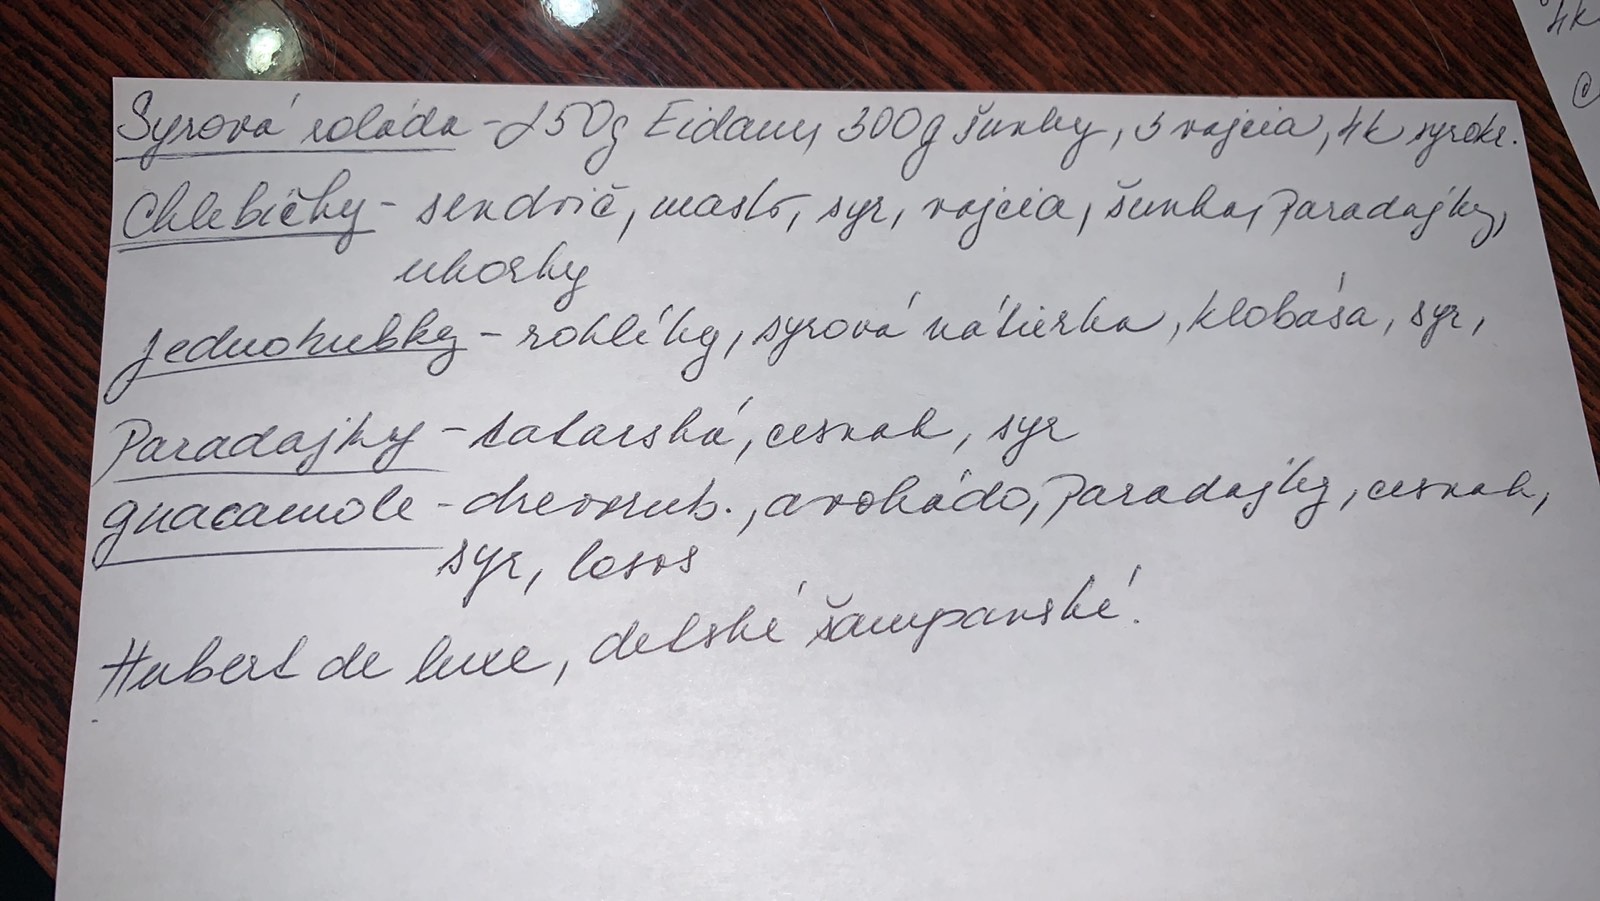 Syrová roláda - 250g Eidamu, 300g šunky, 3 vajcia, 4k syrokr.
Chlebíčky - sendvič, maslo, syr, vajcia, šunka, Paradajky,
uhorky
Jednohubky - rohlíky, syrová nátierka, klobása, syr,
Paradajky - tatarská, cesnak, syr
guacamole - drevorub., avokádo, Paradajky, cesnak,
syr, losos
Hubert de luxe, detské šampanské.
4k